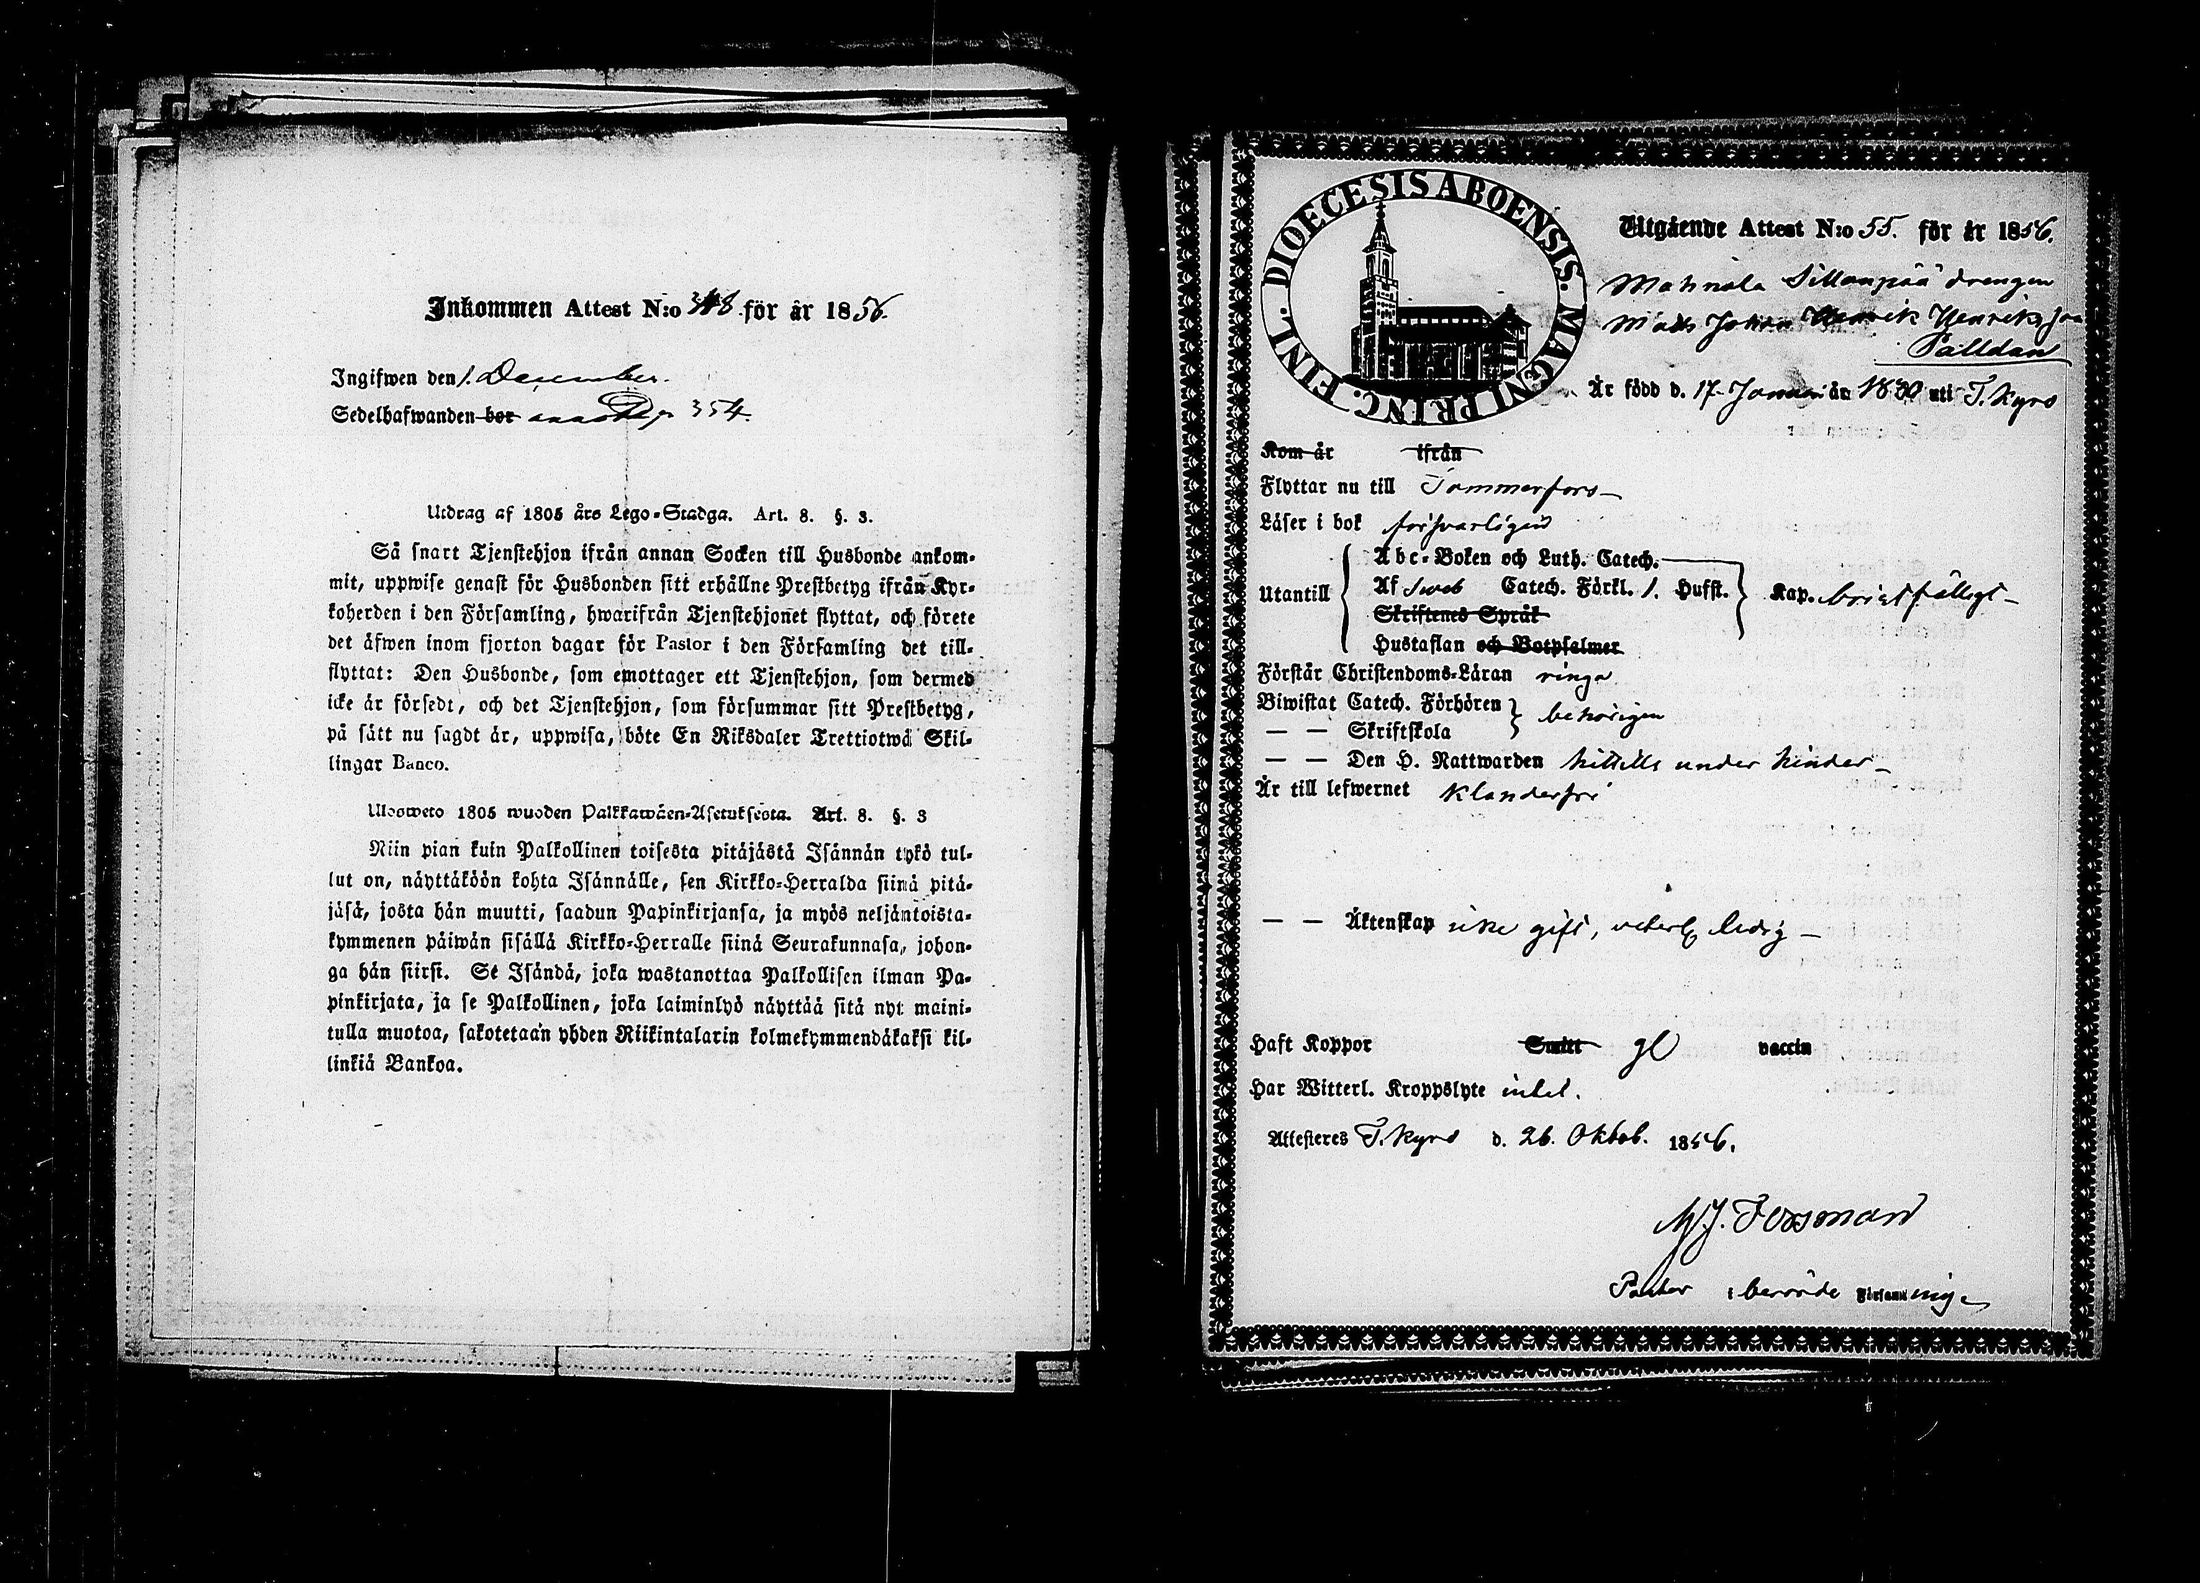 Inkommen Attest N:o 348 för år 1856.
Ingifwen den 1. December.
Sedelhafwanden bor pag 354.
Utdrag af 1805 års Lego-Stadga. Art. 8. §. 3.
Så snart Tjenstehjon ifrån annan Socken till Husbonde ankom-
mit, uppwise genast för Husbonden sitt erhållne Prestbetyg ifrån Kyr-
koherden i den Församling, hwarifrån Tjenstehjonet flyttat, och förete
det äfwen inom fjorton dagar för Pastor i den Församling det till-
flyttat: Den Husbonde, som emottager ett Tjenstehjon, som dermed
icke är försedt, och det Tjenstehjon, som försummar sitt Prestbetyg,
på sätt nu sagdt är, uppwisa, böte En Riksdaler Trettiotwå Skil-
lingar Banco.
Ulosweto 1805 wuoden Palkkawäen-Asetuksesta. Art. 8. §. 3
Niin pian kuin Palkollinen toisesta pitäjästä Isännän tykö tul-
lut on, näyttäköön kohta Isännälle, sen Kirkko-Herralda siinä pitä-
jäsä, josta hän muutti, saadun Papinkirjansa, ja myös neljäntoista-
kymmenen päiwän sisällä Kirkko-Herralle siinä Seurakunnasa, johon-
ga hän siirsi. Se Isändä, joka wastanottaa Palkollisen ilman Pa-
pinkirjata, ja se Palkollinen, joka laiminlyö näyttää sitä nyt maini-
tulla muotoa, sakotetaan yhden Riikintalarin kolmekymmendäkaksi kil-
linkiä Bankoa.
DIOECESIS ABOENSIS. MAGNI PRINC. FINL.
Utgående Attest N:o 55. för år 1856.
Mahnala Sillanpää drengen
Mats Johan Henrik Henriksson
Palldan
Är född d. 17 Januari år 1830 uti T. Kyro
Kom år ifrån
Flyttar nu till Tammerfors
Läser i bok försvarligen
Utantill
Abc-Boken och Luth. Catech.
Af Sveb Catech. Förkl. 1. Hufst. Kap. bristfälligt
Skriftenes Språk
Hustaflan och Botpsalmer
Förstår Christendoms-Läran ringa
Biwistat Catech. Förhören behörigen
— — Skriftskola
— — Den H. Nattwarden hittills under hinder
Är till lefwernet klanderfri
— — Äktenskap icke gift, veterl. ledig
Haft Koppor Smitt vaccin
Har Witterl. Kroppslyte intet.
Attesteres T. Kyro d. 26. Oktob. 1856.
M J. Forsman
Pastor i berörde Församling